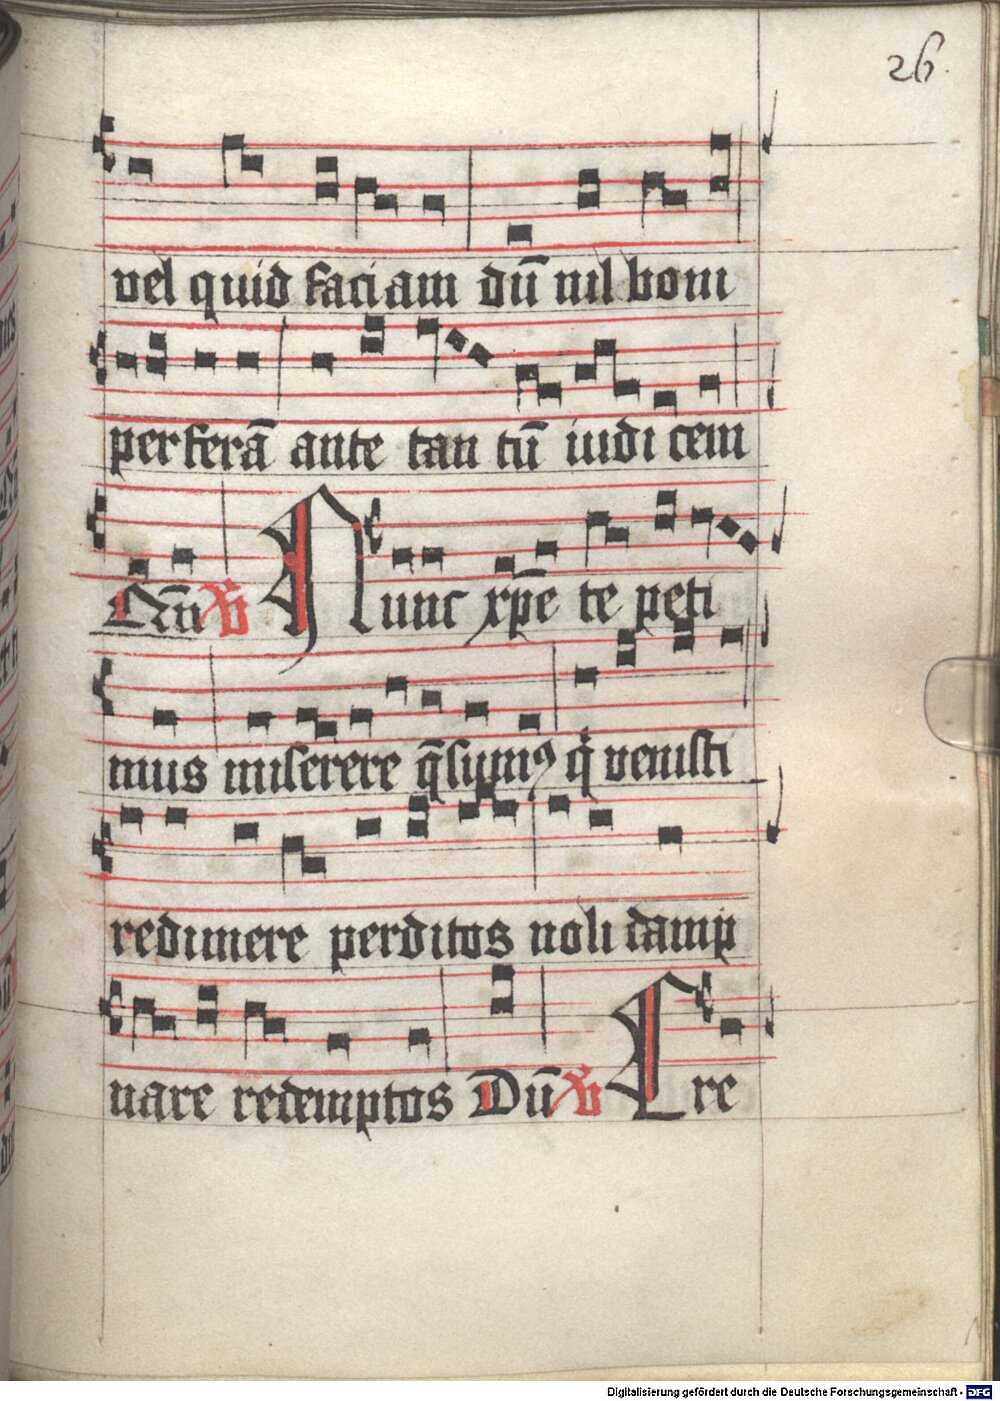 26.
vel quid faciam dū nil boni
perferā ante tan tū iudicem
Qn̄ v̄ Nunc xp̄e te peti
mus miserere q̄sumꝰ q̇ venisti
redimere perditos noli damp
nare redemptos Dū v̄ Cre
Digitalisierung gefördert durch die Deutsche Forschungsgemeinschaft - DFG